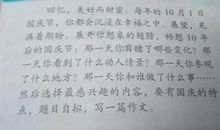 回忆，美好而甜蜜。每年的10月1日
国庆节，你都会沉浸在幸福之中。展望，充
满着期盼。展开你想象的翅膀，畅想10年
后的国庆节：那一天你目睹了哪些变化？那
一天你看到了什么动人情景？那一天你参观
了什么地方？那一天你和谁做了什么事……
然后选择最感兴趣的内容，要有国庆的特
点，题目自拟，写一篇作文。